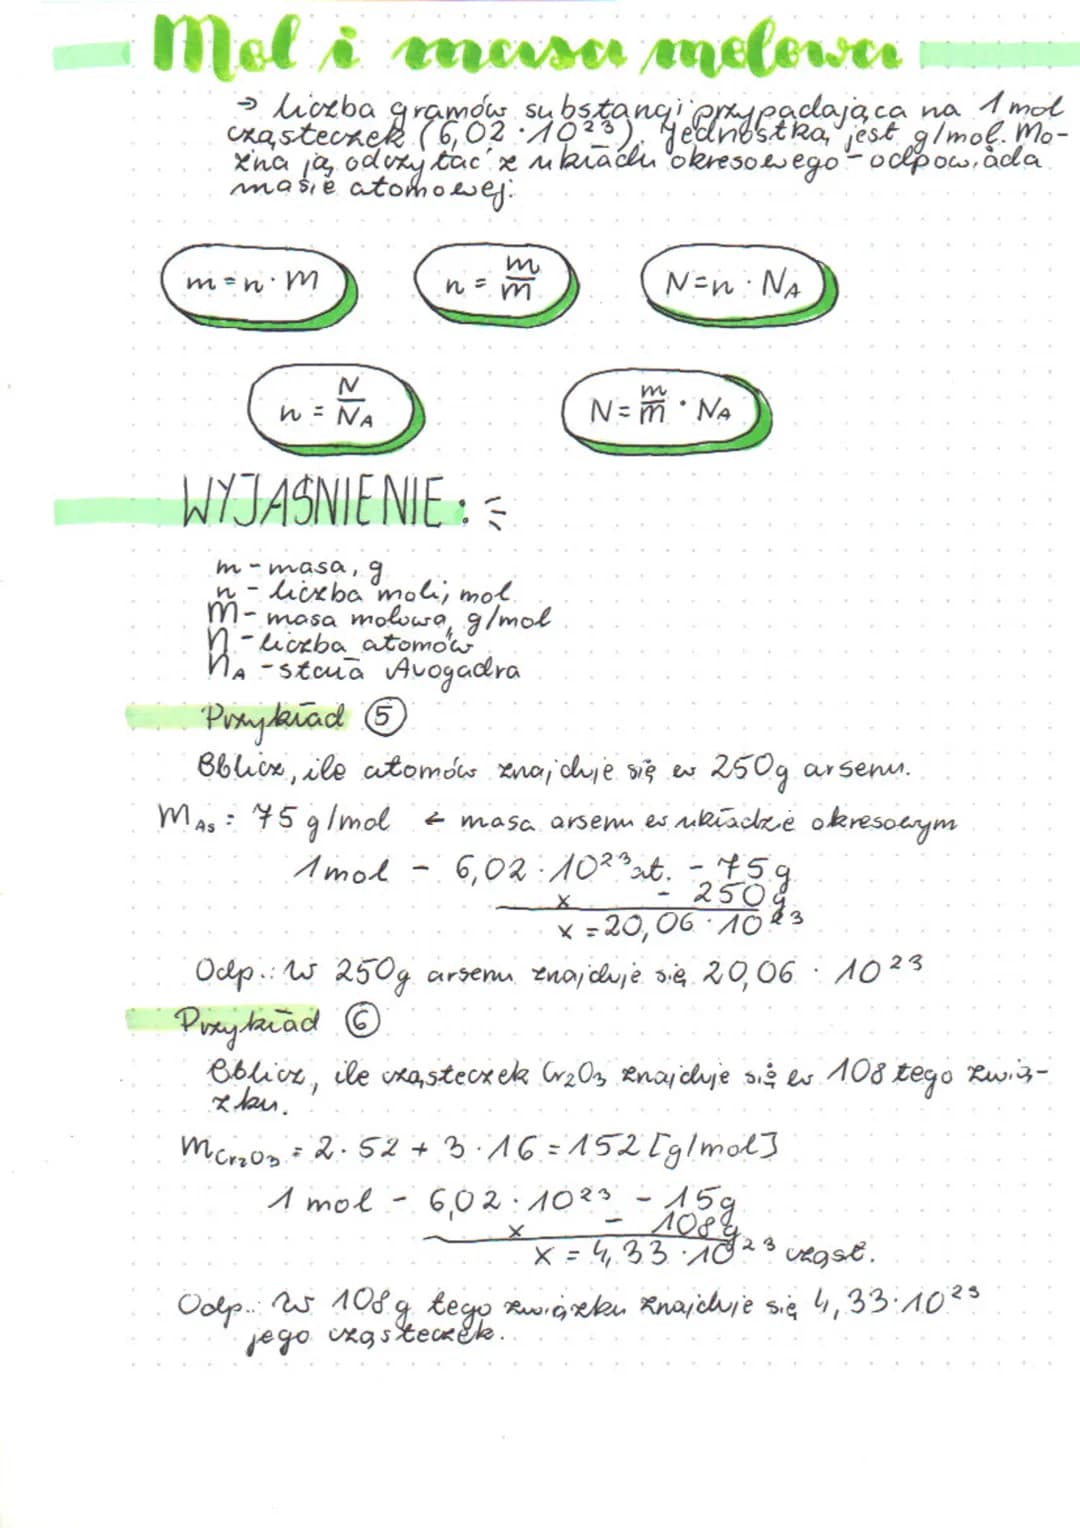 Mol i masa molowa
→ liczba gramów substancji przypadająca na 1 mol
cząsteczek (6,02 · 10²³). Jednostką jest g/mol. Mo-
żna ją odczytać z układu okresowego - odpowiada
masie atomowej.
m = n · M
n = m/M
N = n · NA
n = N/NA
N = m/M · NA
WYJAŚNIENIE:
m - masa, g
n - liczba moli, mol
M - masa molowa, g/mol
N - liczba atomów
NA - stała Avogadra
Przykład 5
Oblicz, ile atomów znajduje się w 250g arsenu.
MAs = 75 g/mol ← masa arsenu w układzie okresowym
1 mol - 6,02 · 10²³ at. - 75g
x - 250g
x = 20,06 · 10²³
Odp.: W 250g arsenu znajduje się 20,06 · 10²³
Przykład 6
Oblicz, ile cząsteczek Cr₂O₃ znajduje się w 108 tego zwią-
zku.
MCr₂O₃ = 2 · 52 + 3 · 16 = 152 [g/mol]
1 mol - 6,02 · 10²³ - 15g
x - 108g
x = 4,33 · 10²³ cząst.
Odp.: W 108g tego związku znajduje się 4,33 · 10²³
jego cząsteczek.